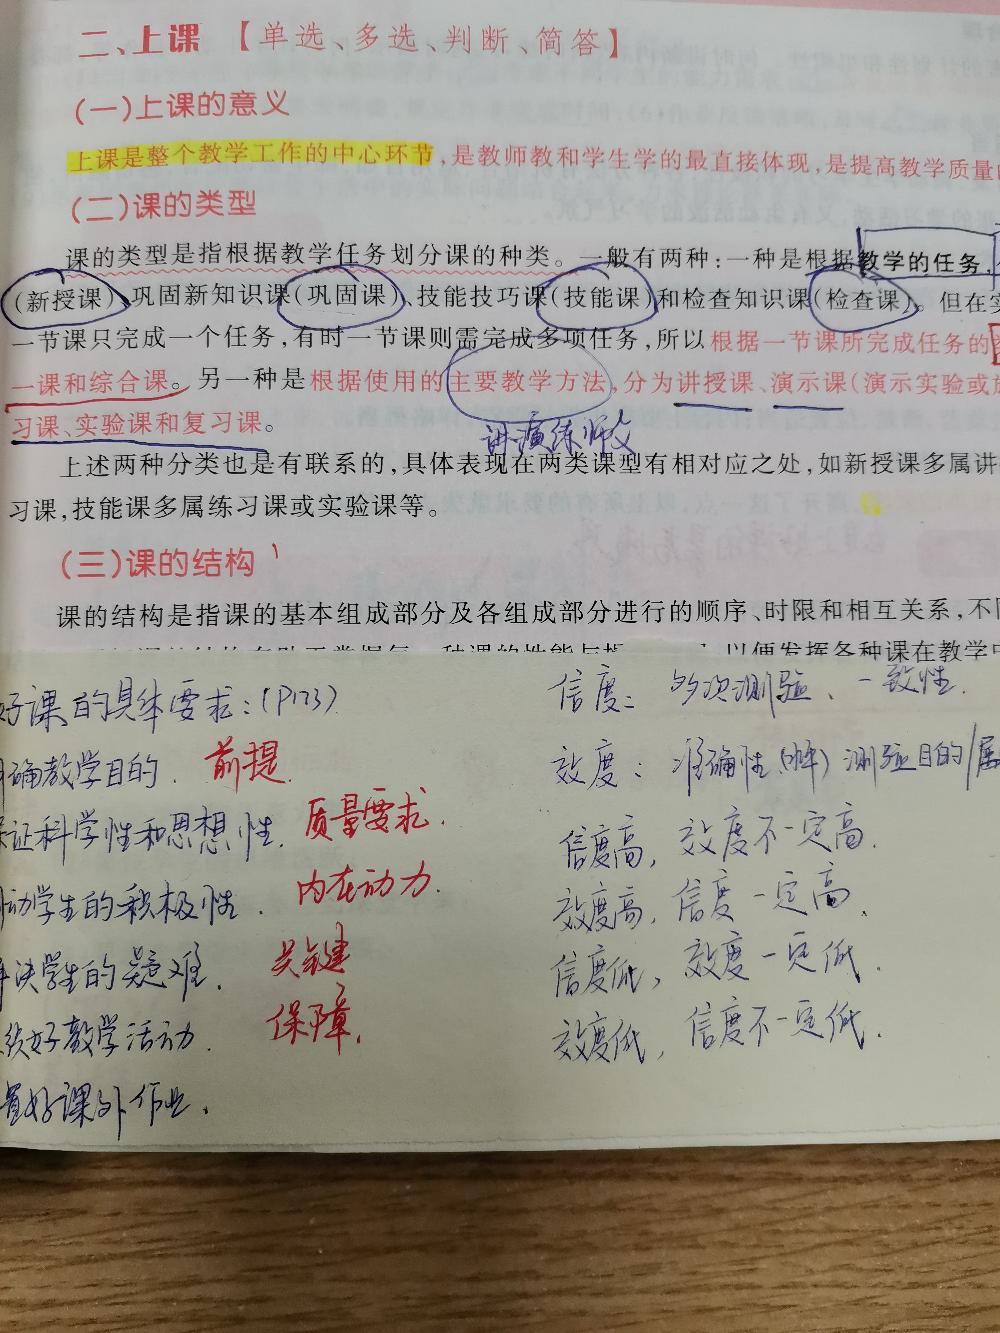 二、上课 【单选、多选、判断、简答】
(一)上课的意义
上课是整个教学工作的中心环节，是教师教和学生学的最直接体现，是提高教学质量
(二)课的类型
课的类型是指根据教学任务划分课的种类。一般有两种：一种是根据教学的任务，
(新授课)、巩固新知识课(巩固课)、技能技巧课(技能课)和检查知识课(检查课)。但在实
一节课只完成一个任务，有时一节课则需完成多项任务，所以根据一节课所完成任务的
一课和综合课。另一种是根据使用的主要教学方法，分为讲授课、演示课(演示实验或
习课、实验课和复习课。
讲演练
上述两种分类也是有联系的，具体表现在两类课型有相对应之处，如新授课多属讲
习课，技能课多属练习课或实验课等。
(三)课的结构
课的结构是指课的基本组成部分及各组成部分进行的顺序、时限和相互关系，不同
以便发挥各种课在教学中
好课的具体要求：(P173)
确教学目的． 前提
证科学性和思想性． 质量要求．
动学生的积极性． 内在动力．
决学生的疑难． 关键
好教学活动． 保障．
置好课外作业．
信度： 多次测验、一致性．
效度： 准确性 测验目的/属
信度高，效度不一定高．
效度高，信度一定高．
信度低，效度一定低．
效度低，信度不一定低．